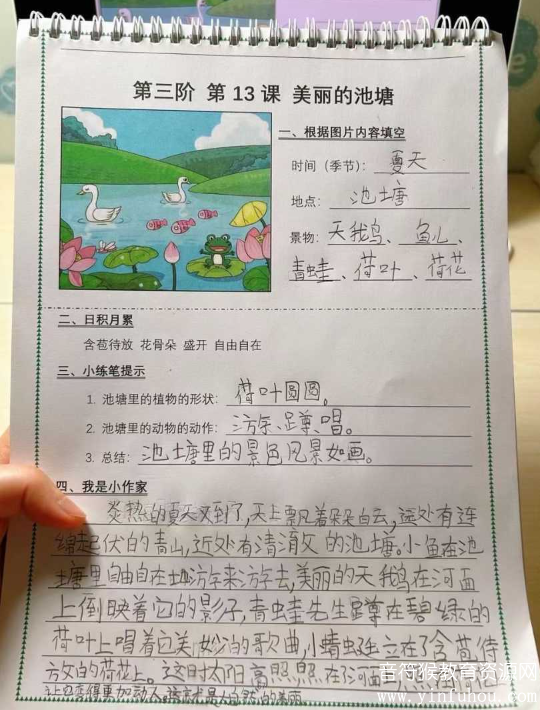 第三阶 第13课 美丽的池塘
一、根据图片内容填空
时间（季节）： 夏天
地点： 池塘
景物： 天我鸟、鱼儿、
青蛙、荷叶、荷花
二、日积月累
含苞待放 花骨朵 盛开 自由自在
三、小练笔提示
1. 池塘里的植物的形状： 荷叶圆圆。
2. 池塘里的动物的动作： 游、蹲、唱。
3. 总结： 池塘里的景色风景如画。
四、我是小作家
炎热的夏天又到了,天上飘着朵朵白云,远处有连
绵起伏的青山,近处有清澈的池塘。小鱼在池
塘里自由自在地游来游去,美丽的天鹅在河面
上倒映着它的影子,青蛙先生蹲在碧绿的
荷叶上唱着它美妙的歌曲,小蜻蜓立在了含苞待
放的荷花上。这时太阳高照照在河面
上边变得更加动人,这就是大自然的美丽
音符猴教育资源网
www.yinfuhou.com